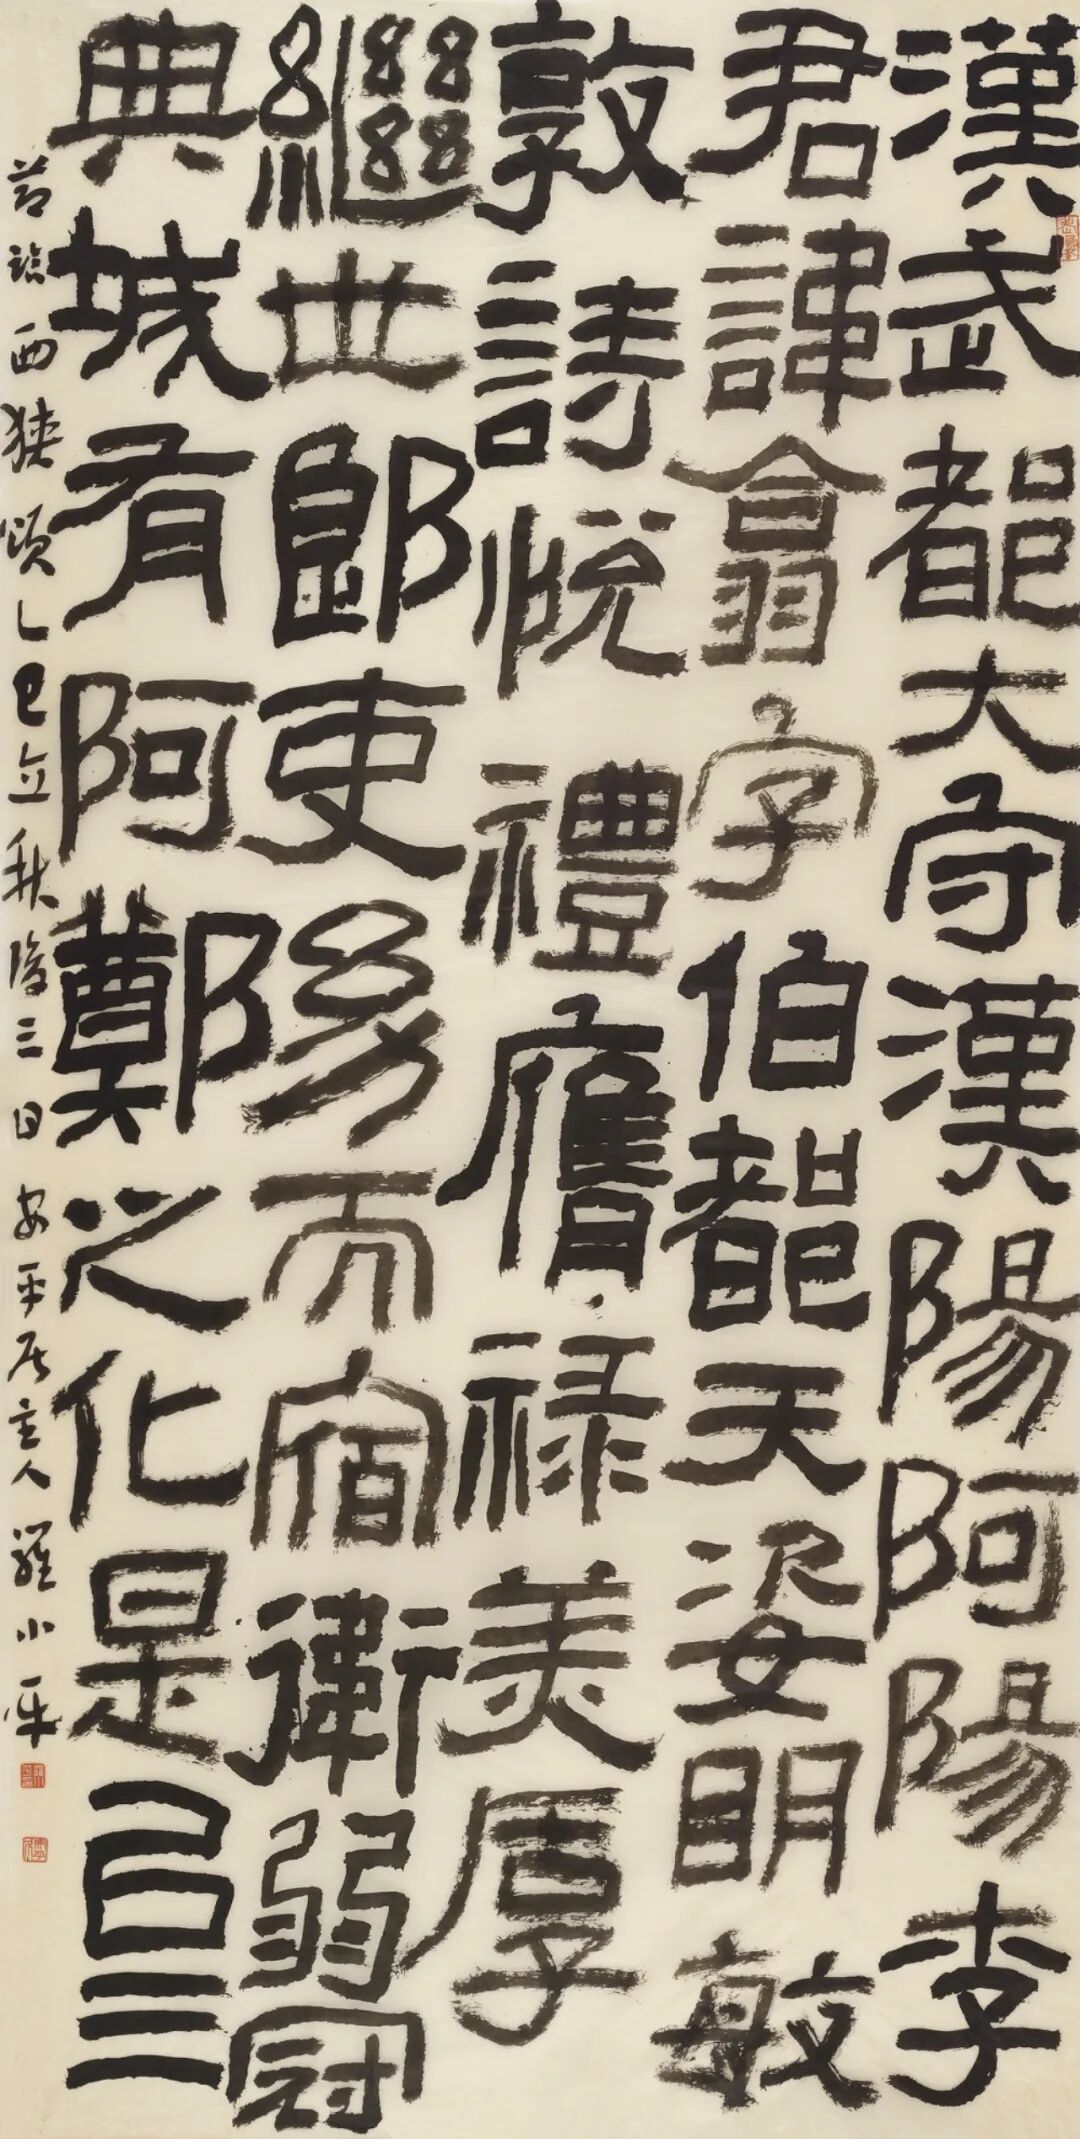 漢武都大守漢陽阿陽李
君諱翕字伯都天姿明敏
敦詩悅禮膺祿美厚
繼世郎吏幼而宿衛弱冠
典城有阿鄭之化是㠯三
節臨西狹頌乙巳立秋後三日安平居主人羅小平